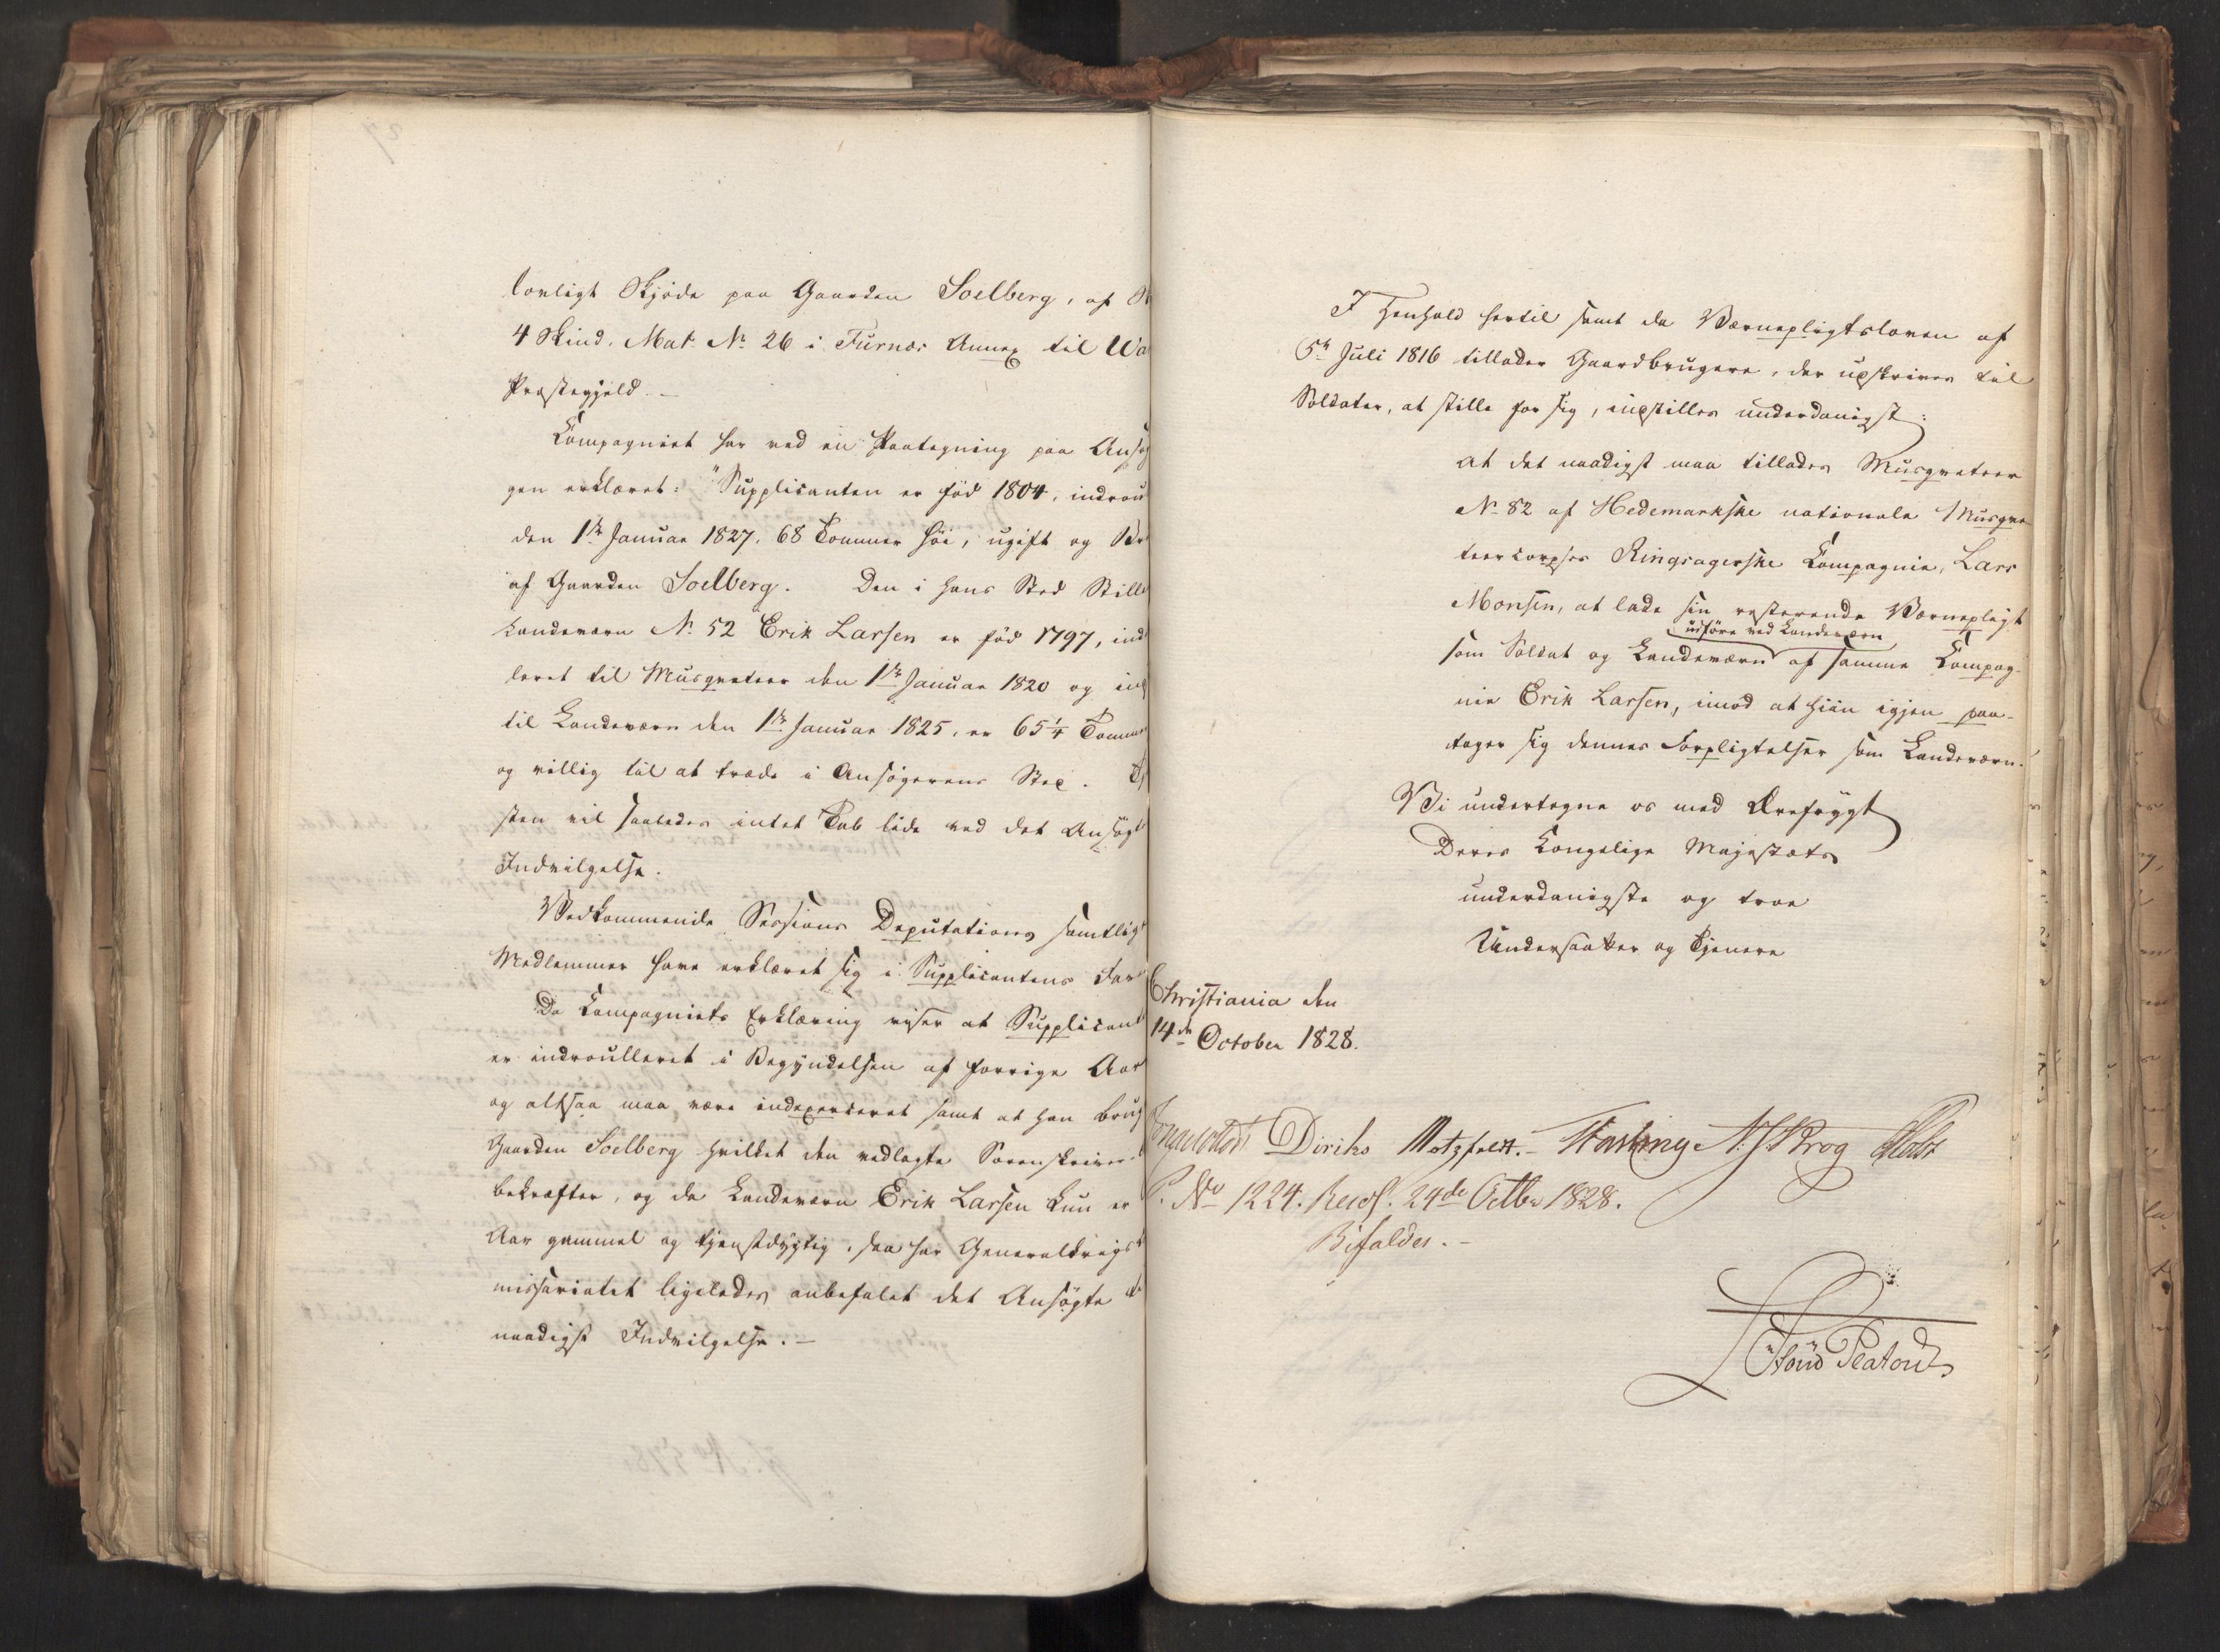 lovligt Skjøde paa Gaarden Soelberg, af
4 Skind. Mat. No 26 i Furnæs Annex til Wa
Præstegjeld.
Compagniet har ved en Paategning paa Ansøg
gen erklæret: "Supplicanten er fød 1804, indrou
den 1ste Januar 1827, 68 Tommer høi, ugift og Br
af Gaarden Soelberg. Den i hans Sted Stille
Landeværn No 52 Erik Larsen er fød 1797, ind
leret til Musqueteer den 1ste Januar 1820 og
til Landeværn den 1ste Januar 1825, er 65 1/4 Tomme
og villig til at træde i Ansøgerens Sted.
sten vil saaledes intet Tab lide ved det Ansøgte
Indvilgelse.
Vedkommende Sessions Deputations samtlige
Medlemmer have erklæret sig i Supplicantens
Da Compagniets Erklæring viser at Supplicant
er indroulleret i Begyndelsen af forrige Aar
og altsaa maa være indexerceret samt at han brug
Gaarden Soelberg hvilket den vedlagte Sorenskriver
bekræfter, og da Landeværn Erik Larsen kun er
Aar gammel og tjenstdygtig, saa har Generalkrigsc
missariatet ligeledes anbefalet det Ansøgte
naadigst Indvilgelse. —
I Henhold hertil samt da Værnepligtsloven af
5te Juli 1816 tillader Gaardbrugere, der udskrives til
Soldater, at stille for sig, indstilles underdanigst:
at det naadigst maa tillades Musqueteer
No 82 af Hedemarkske nationale Musque-
teercorpses Ringsagerske Compagnie, Lars
Monsen, at lade sin resterende Værnepligt
udføre ved Landeværn
som Soldat og Landeværn af samme Compag-
nie Erik Larsen, imod at hiin igjen paa-
tager sig dennes Forpligtelser som Landeværn.
Vi undertegne os med Ærefrygt
Deres Kongelige Majestæts
underdanigste og troe
Undersaatter og Tjenere
Christiania den
14de October 1828.
Diriks Motzfeldt. Fasting N: J. Krog Holst
P. No 1224. Resol. 24de Octbr 1828.
Bifaldes. —